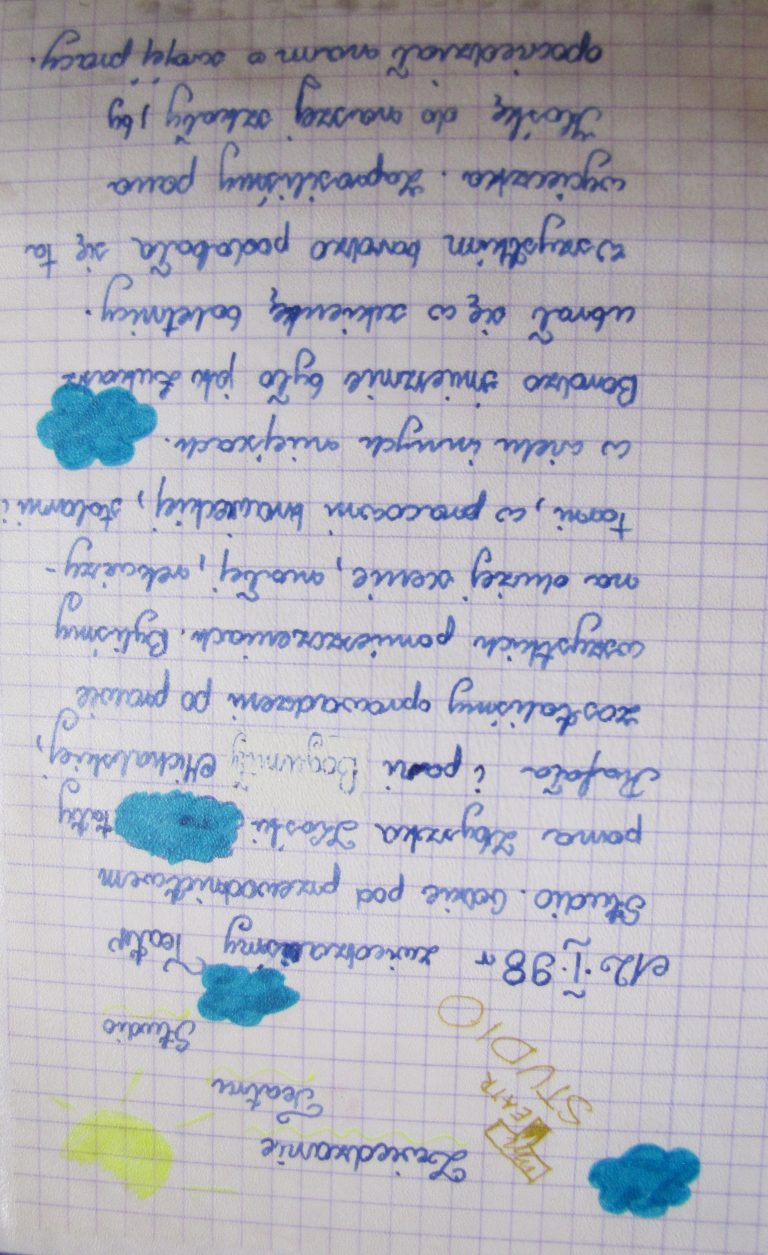 Zwiedzanie
Teatru
Studio
TEATR
STUDIO
12.I.98 r zwiedzaliśmy Teatr
Studio. Gdzie pod przewodnictwem
pana Zbyszka Kłoski taty
Rafała i pani Bogumiły Michalskiej,
zostaliśmy oprowadzeni po prawie
wszystkich pomieszczeniach. Byliśmy
na dużej scenie, małej, rekwizy-
torni, w pracowni krawieckiej, stolarni i
w wielu innych miejscach.
Bardzo śmiesznie było jak Łukasz
ubrał się w sukienkę baletnicy.
Wszystkim bardzo podobała się ta
wycieczka. Zaprosiliśmy pana
Kłoskę do naszej szkoły, by
opowiedział nam o swojej pracy.